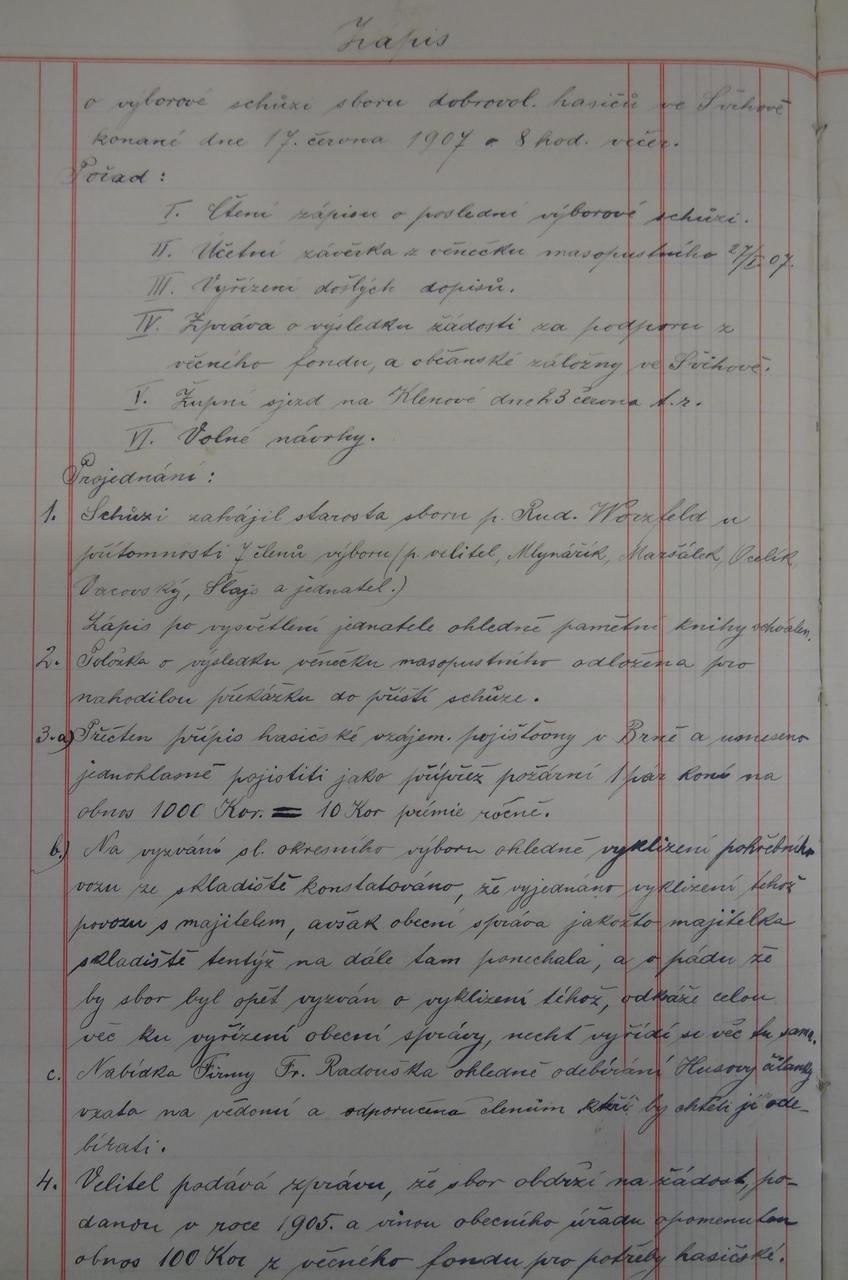 Zápis
o výborové schůzi sboru dobrovol. hasičů ve Švihově
konané dne 17. června 1907 o 8 hod. večer.
Pořad:
I. Čtení zápisu o poslední výborové schůzi.
II. Účetní závěrka z věnečku masopustního 27/I. 07.
III. Vyřízení došlých dopisů.
IV. Zpráva o výsledku žádosti za podporu z
věčného fondu, a občanské záložny ve Švihově.
V. Župní sjezd na Klenové dne 23 června t. r.
VI. Volné návrhy.
Projednání:
1. Schůzi zahájil starosta sboru p. Rud. Worzfeld u
přítomnosti 7 členů výboru (p. velitel, Mlynářík, Maršálek, Ocelík,
Vacovský, Šlajs a jednatel.)
Zápis po vysvětlení jednatele ohledně pamětní knihy schválen.
2. Položka o výsledku věnečku masopustního odložena pro
nahodilou překážku do příští schůze.
3. a) Přečten přípis hasičské vzájem. pojišťovny v Brně a usneseno
jednohlasně pojistiti jako přípřež požární 1 pár koní na
obnos 1000 Kor. = 10 Kor prémie ročně.
b.) Na vyzvání sl. okresního výboru ohledně vyklizení pohřebního
vozu ze skladiště konstatováno, že vyjednáno vyklizení tehož
povozu s majitelem, avšak obecní správa jakožto majitelka
skladiště tentýž na dále tam ponechala, a v pádu že
by sbor byl opět vyzván o vyklizení téhož, odkáže celou
věc ku vyřízení obecní správy, nechť vyřídí si věc tu sama.
c. Nabídka Firmy Fr. Radouška ohledně odebírání Husovy čítanky
vzata na vědomí a odporučena členům kteří by chtěli ji ode-
bírati.
4. Velitel podává zprávu, že sbor obdrží na žádost, po-
danou v roce 1905. a vinou obecního úřadu opomenutou
obnos 100 Kor z věčného fondu pro potřeby hasičské.